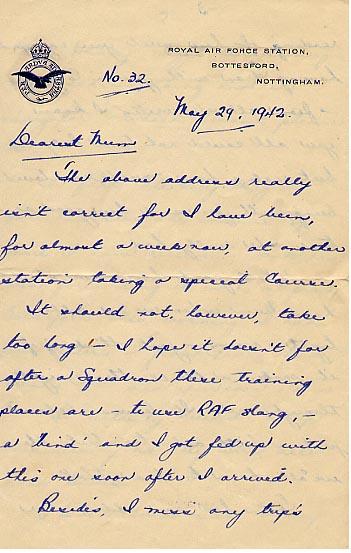 ROYAL AIR FORCE STATION,
BOTTESFORD,
NOTTINGHAM.
PER ARDUA AD ASTRA
No. 32.
May 29, 1942.
Dearest Mum
The above address really
isn't correct for I have been,
for almost a week now, at another
station taking a special Course.
It should not, however, take
too long! - I hope it doesn't for
after a Squadron these training
places are - to use RAF slang, -
a 'bind' and I got fed up with
this one soon after I arrived.
Besides, I miss any trips